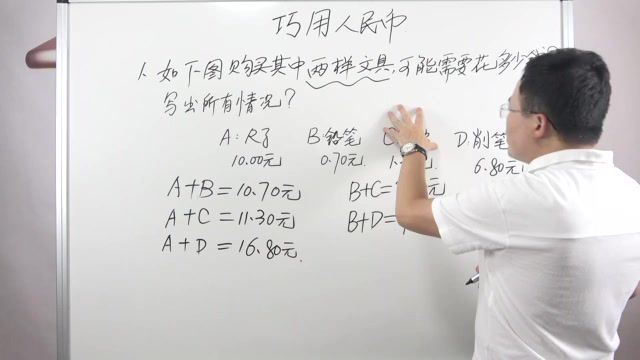 巧用人民币
1. 如下图购买其中两样文具,可能需要花多少
写出所有情况?
A:尺子 B:铅笔 C: D:削笔
10.00元 0.70元 1. 元 6.80元
A+B=10.70元 B+C= 元
A+C=11.30元 B+D=
A+D=16.80元.